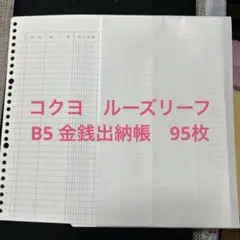 コクヨ　ルーズリーフ
B5 金銭出納帳　95枚